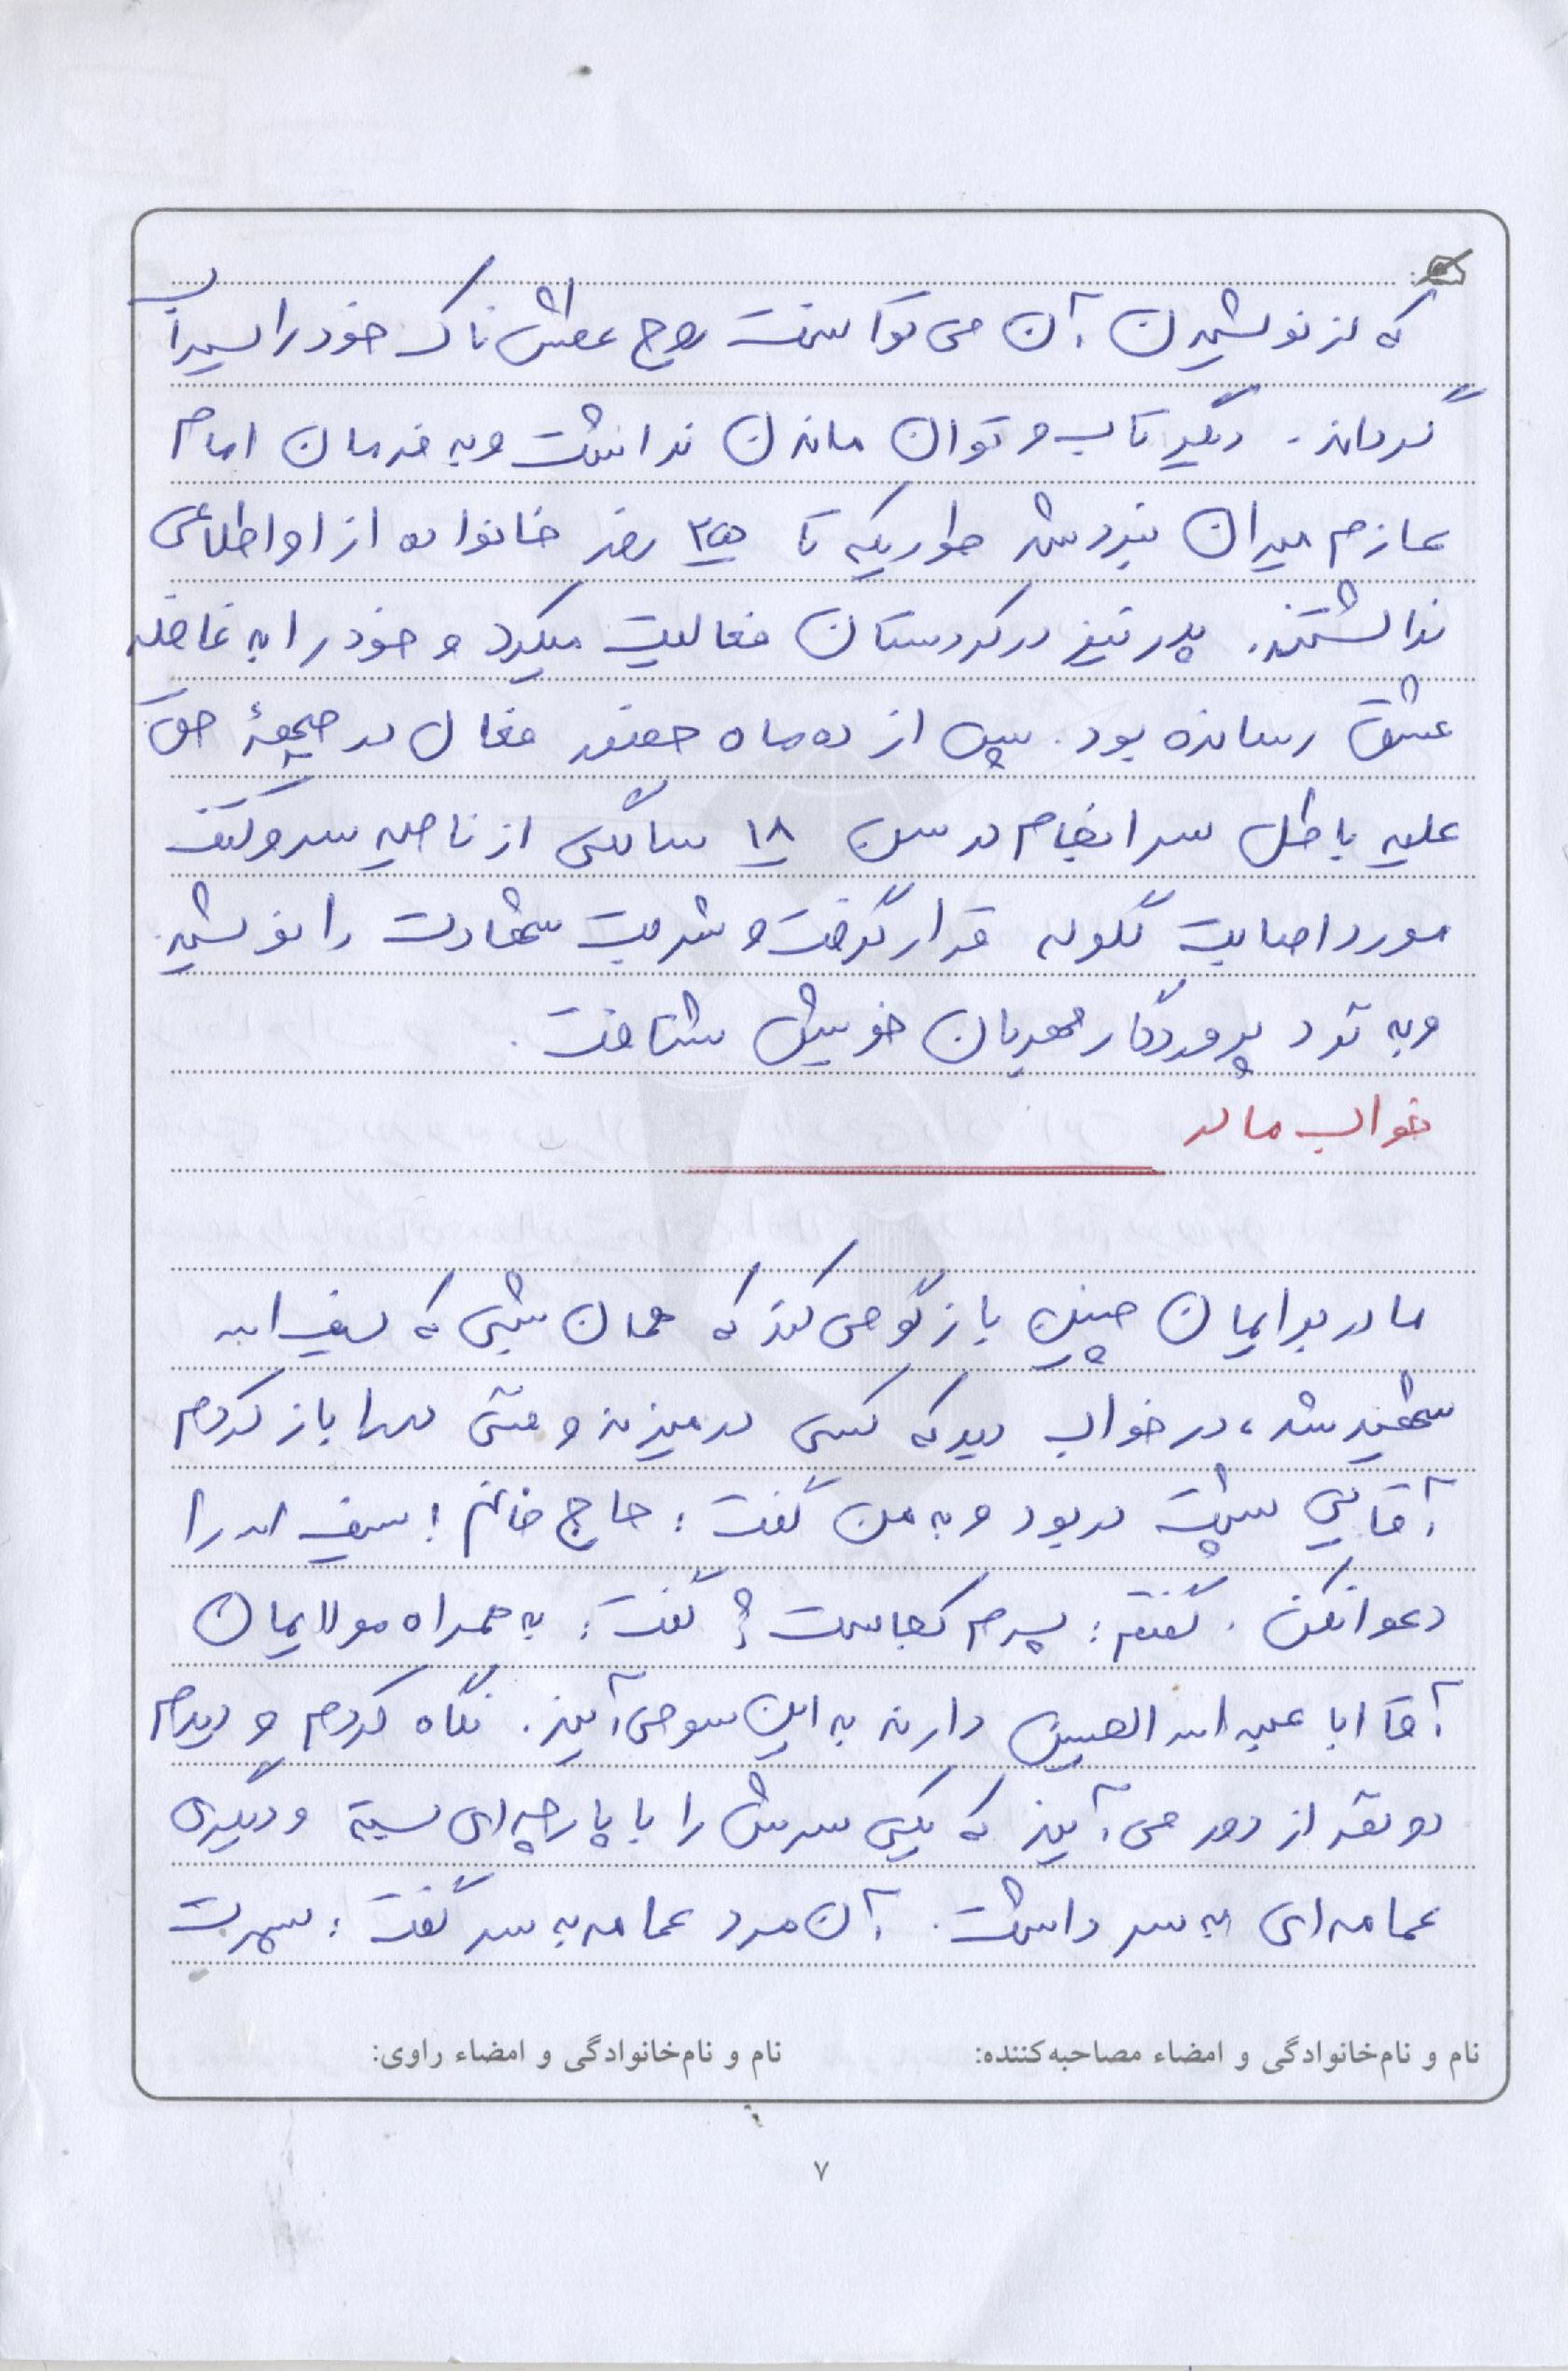 که از نوشیدن آن می توانست روح عطش ناک خود را سیراب
گرداند. دیگر تاب و توان ماندن نداشت و به فرمان امام
عازم میدان نبرد شد طوریکه تا ۲۵ روز خانواده از او اطلاعی
نداشتند. پدر نیز در کردستان فعالیت میکرد و خود را به غافله
عشق رسانده بود. پس از ده ماه حضور فعال در جبههٔ حق
علیه باطل سرانجام در سن ۱۸ سالگی از ناحیه سر و کتف
مورد اصابت گلوله قرار گرفت و شربت شهادت را نوشید
و به نزد پروردگار مهربان خویش شتافت.
خواب مادر
مادر با ایمان چنین بازگو می کند که همان شبی که سیف الله
شهید شد، در خواب دید که کسی در میزند وقتی در را باز کردم
آقایی پشت در بود و به من گفت: حاج خانم! سیف الله را
دعوا نکن. گفتم: پسرم کجاست؟ گفت: به همراه مولایمان
آقا ابا عبد الله الحسین دارند به این سو می آیند. نگاه کردم و دیدم
دو نفر از دور می آیند که یکی سرش را با پارچه ای بسته و دیگری
عمامه ای به سر داشت. آن مرد عمامه به سر گفت: پسرت
نام و نام‌خانوادگی و امضاء مصاحبه‌کننده: نام و نام‌خانوادگی و امضاء راوی:
۷